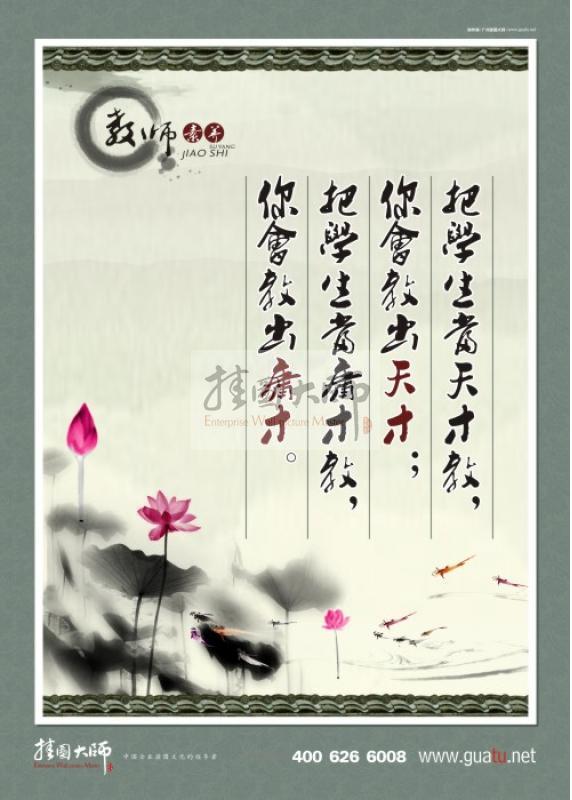 教师 素养
SU YANG
JIAO SHI
把學生當天才教，
你會教出天才；
把學生當庸才教，
你會教出庸才。
挂图大师
Enterprise Wall Picture Master
挂图大师
中国企业挂图文化的领导者
400 626 6008 www.guatu.net